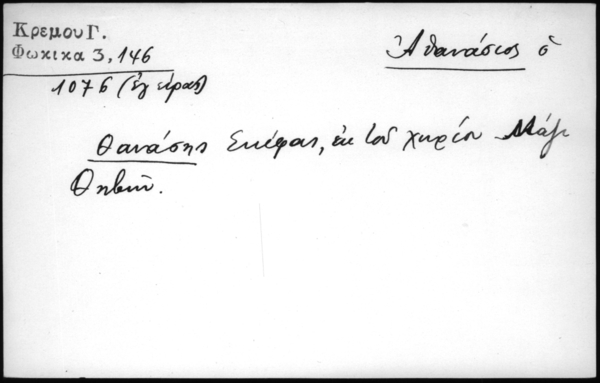 Κρεμου Γ.
Φωκικα 3, 146
Ἀθανάσιος ὁ
1076 (ἔγειρας)
Θανάσης Σκέφας, ἐκ τοῦ χωρίου Μάζι
Θηβῶν.